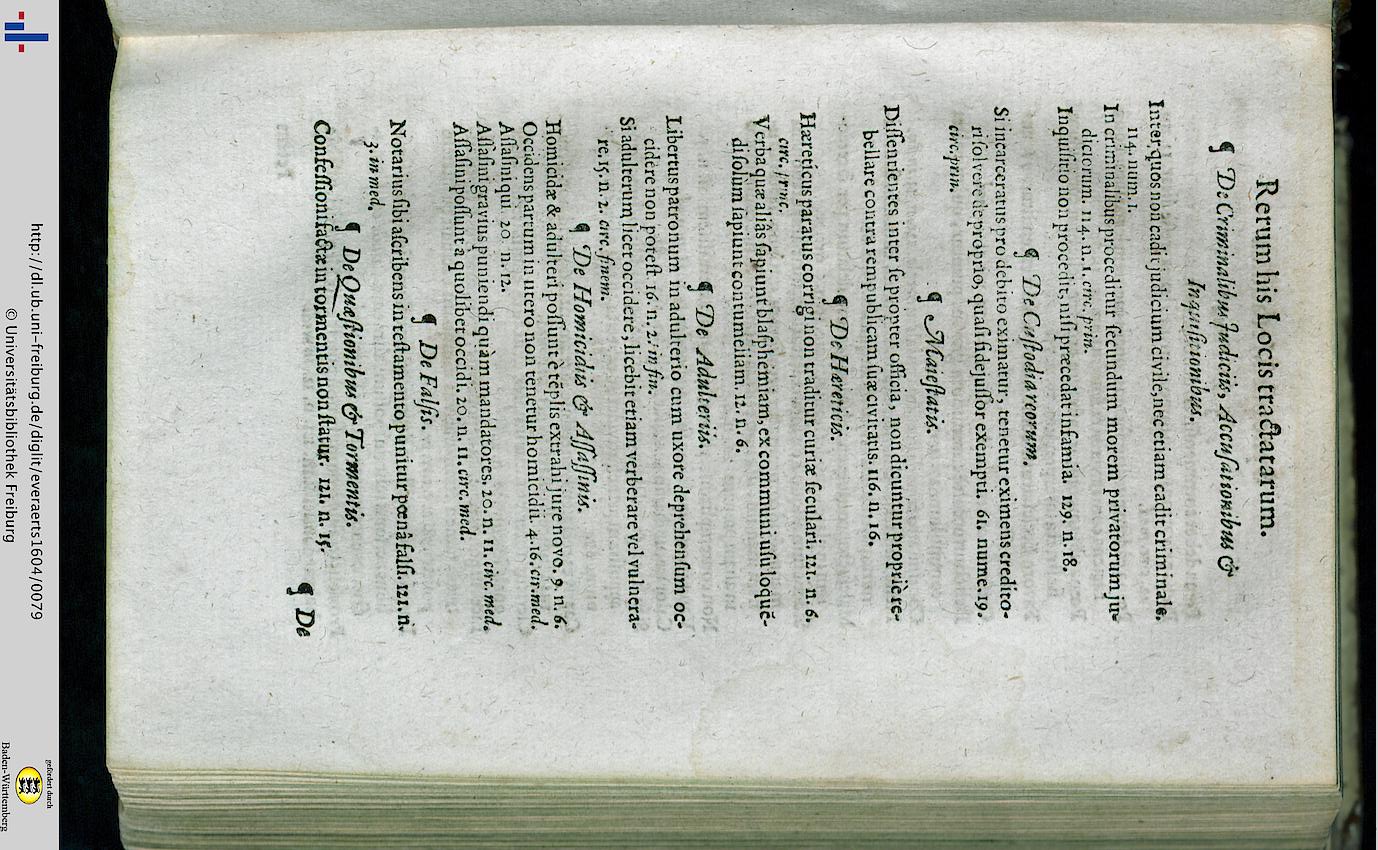 Rerum his Locis tractatarum.
¶ De Criminalibus Judiciis, Accusationibus &
Inquisitionibus.
Inter quos non cadit judicium civile, nec etiam cadit criminale.
114. num. 1.
In criminalibus proceditur secundum morem privatorum ju-
diciorum. 114. n. 1. circ. prin.
Inquisitio non procedit, nisi præcedat infamia. 129. n. 18.
¶ De Custodia reorum.
Si incarceratus pro debito eximatur, tenetur eximens credito-
ri solvere de proprio, quasi fidejussor exempti. 61. nume. 19.
circ. prin.
¶ Maiestatis.
Dissentientes inter se propter officia, non dicuntur propriè re-
bellare contra rempublicam suæ civitatis. 116. n. 16.
¶ De Hæreticis.
Hæreticus paratus corrigi non traditur curiæ seculari. 121. n. 6.
circ. princ.
Verba quæ aliàs sapiunt blasphemiam, ex communi usu loquē-
di solùm sapiunt contumeliam. 12. n. 6.
¶ De Adulteriis.
Libertus patronum in adulterio cum uxore deprehensum oc-
cidere non potest 16. n. 2. in fin.
Si adulterum licet occidere, licebit etiam verberare vel vulnera-
re. 15. n. 2. circ. finem.
¶ De Homicidiis & Assassinis.
Homicidæ & adulteri possunt è tēplis extrahi jure novo. 9. n. 6.
Occidens partum in utero non tenetur homicidii. 4. 16. cir. med.
Assassini qui. 20. n. 12.
Assassini gravius puniendi quàm mandatores. 20. n. 11. circ. med.
Assassini possunt à quolibet occidi. 20. n. 11. circ. med.
¶ De Falsis.
Notarius sibi ascribens in testamento punitur pœnâ falsi. 121. n.
3. in med.
¶ De Quæstionibus & Tormentis.
Confessioni factæ in tormentis non statur. 121. n. 15.
¶ De
http://dl.ub.uni-freiburg.de/diglit/everaerts1604/0079
© Universitätsbibliothek Freiburg
gefördert durch
Baden-Württemberg